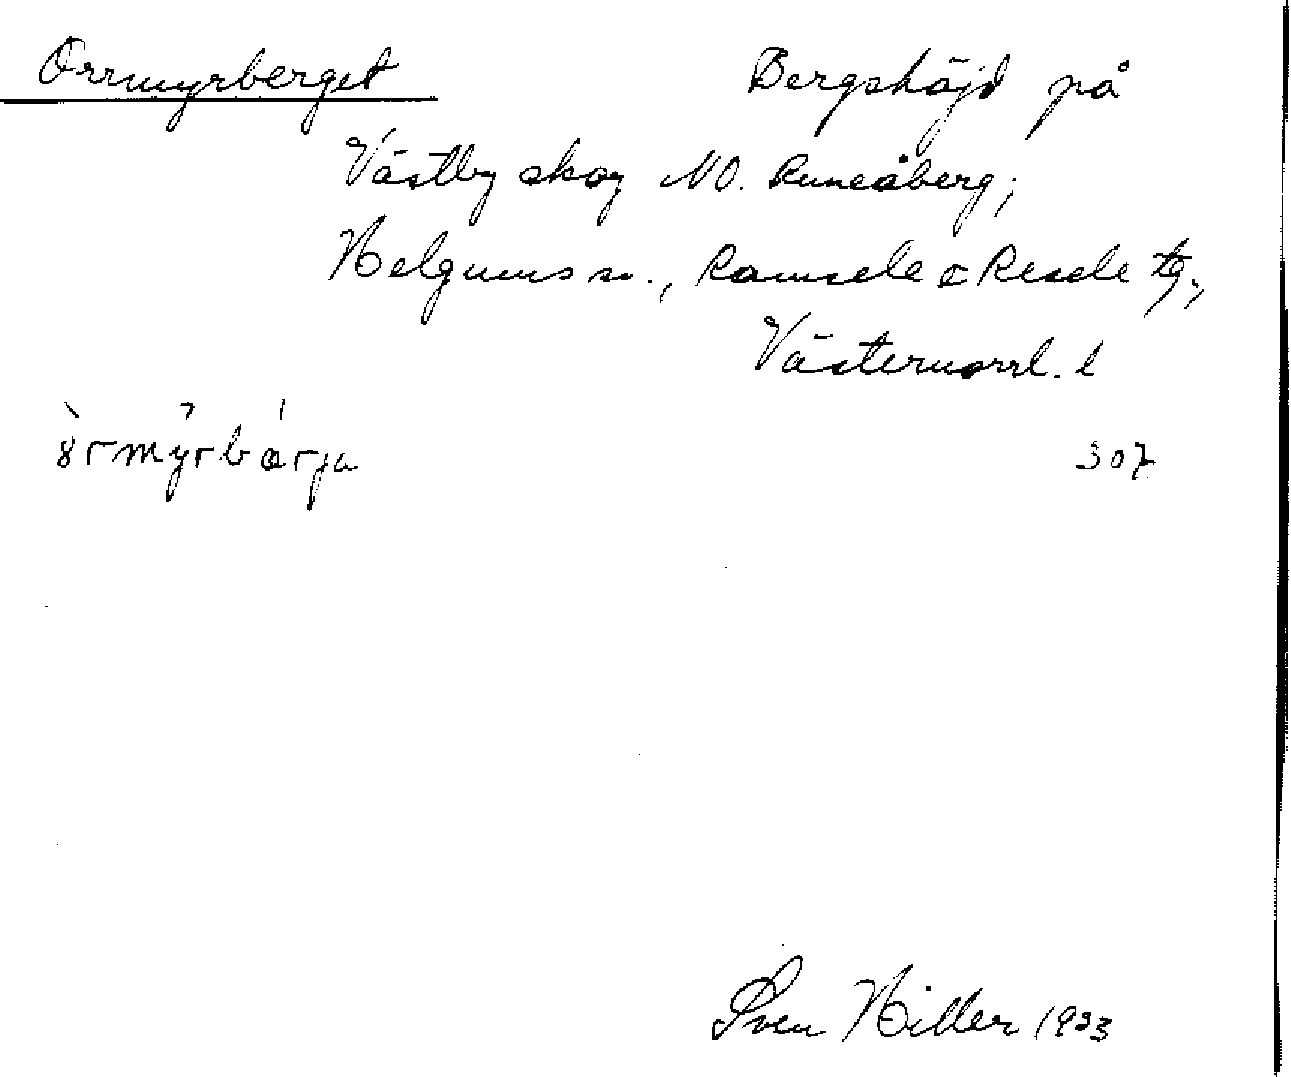 Orrmyrberget
Bergshöjd på
Västby skog NO. Runeåberg;
Helgums sn., Ramsele o Resele tg,
Västernorrl. l
307
Sven Hiller 1933